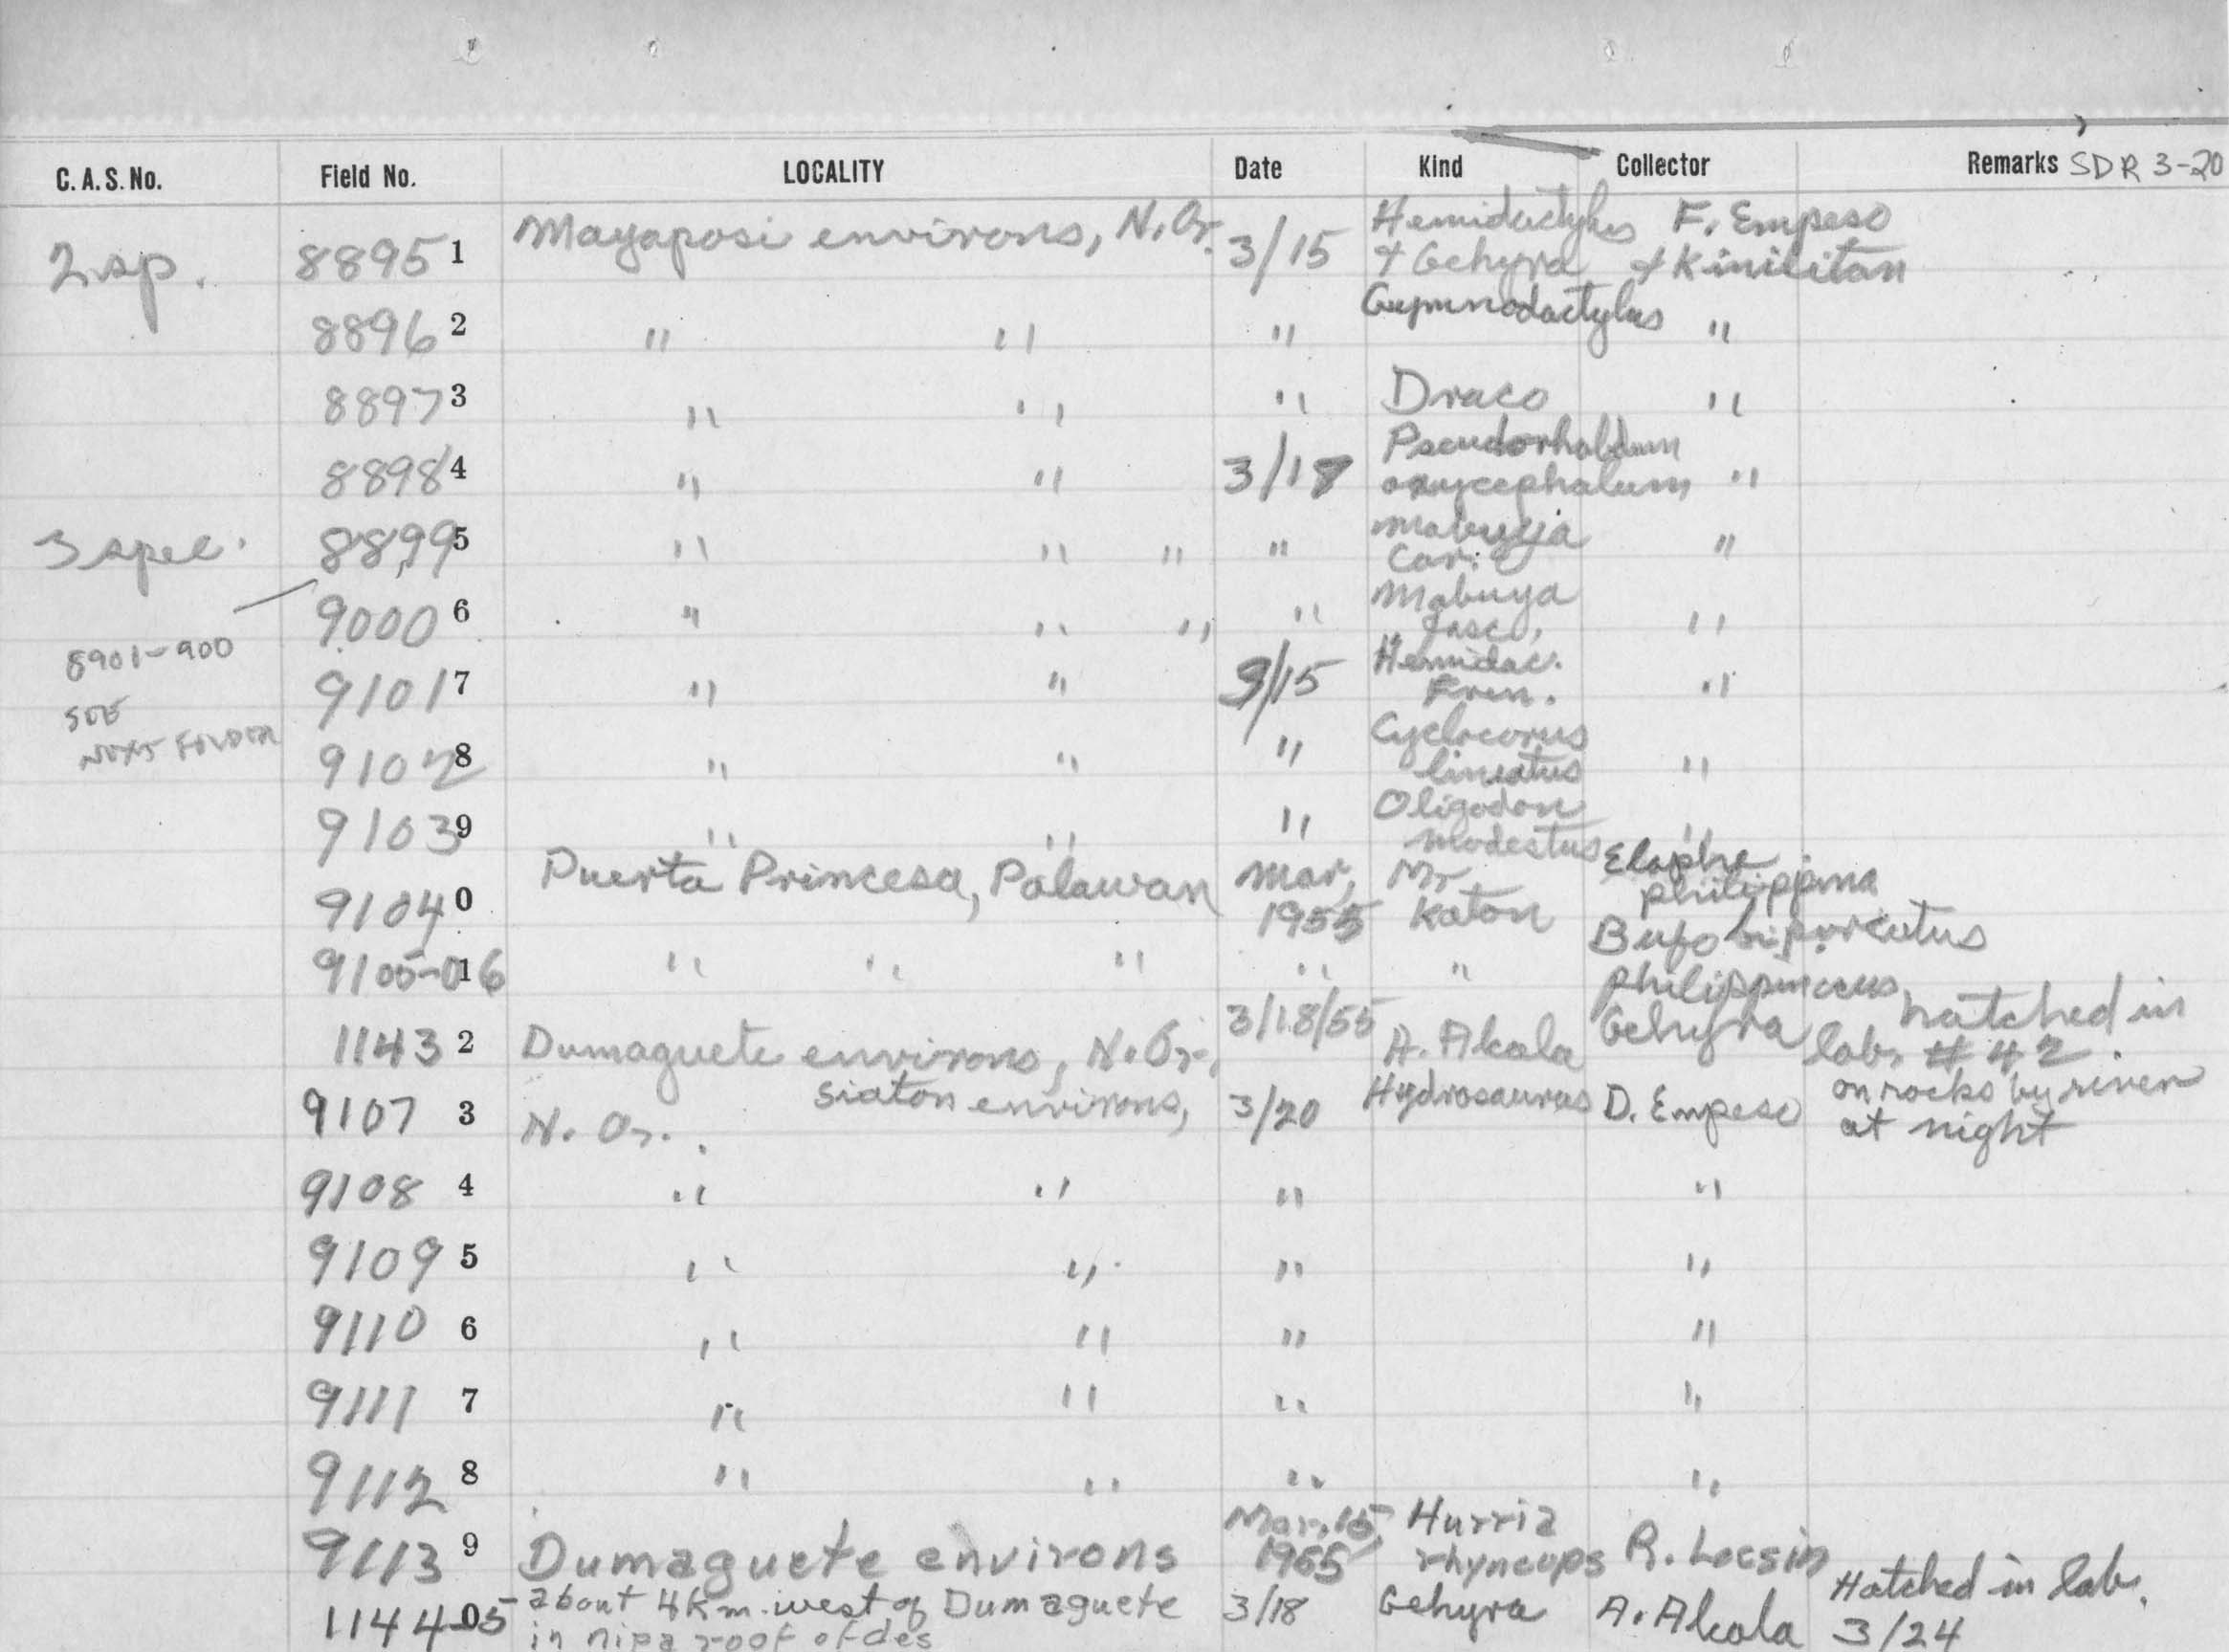 C. A. S. No. Field No. LOCALITY Date Kind Collector Remarks SDR 3-20
2 sp. 8895 1 Mayaposi environs, N. Or. 3/15 Hemidactylus F. Empeso
+ Gehyra + Kinilitan
8896 2 " " " Gymnodactylus "
8897 3 " " " Draco "
8898 4 " " 3/18 Pseudorhabdum
oxycephalum "
3 spec. 8899 5 " " " " Mabuya "
Car.
9000 6 " " " " Mabuya "
fasc.
8901-900
SEE
NEXT FOLDER
9101 7 " " 3/15 Hemidac. "
Fren.
9102 8 " " " Cyclocorus
lineatus "
9103 9 " " " Oligodon
modestus "
9104 0 Puerta Princesa, Palawan Mar, 1955 Mr Katon Elaphe
philippina
9105-06 1 " " " " " Bufo biporcatus
philippinicus
1143 2 Dumaguete environs, N. Or., 3/18/55 A. Alcala Gehyra hatched in
lab, # 42.
9107 3 Siaton environs, 3/20 Hydrosaurus D. Empeso on rocks by river
N. Or. at night
9108 4 " " " "
9109 5 " " " "
9110 6 " " " "
9111 7 " " " "
9112 8 " " " "
9113 9 Dumaguete environs Mar. 15, 1955 Hurria
rhyncops R. Locsin
1144-05 about 4 km. west of Dumaguete 3/18 Gehyra A. Alcala Hatched in lab.
in nipa roof of des 3/24